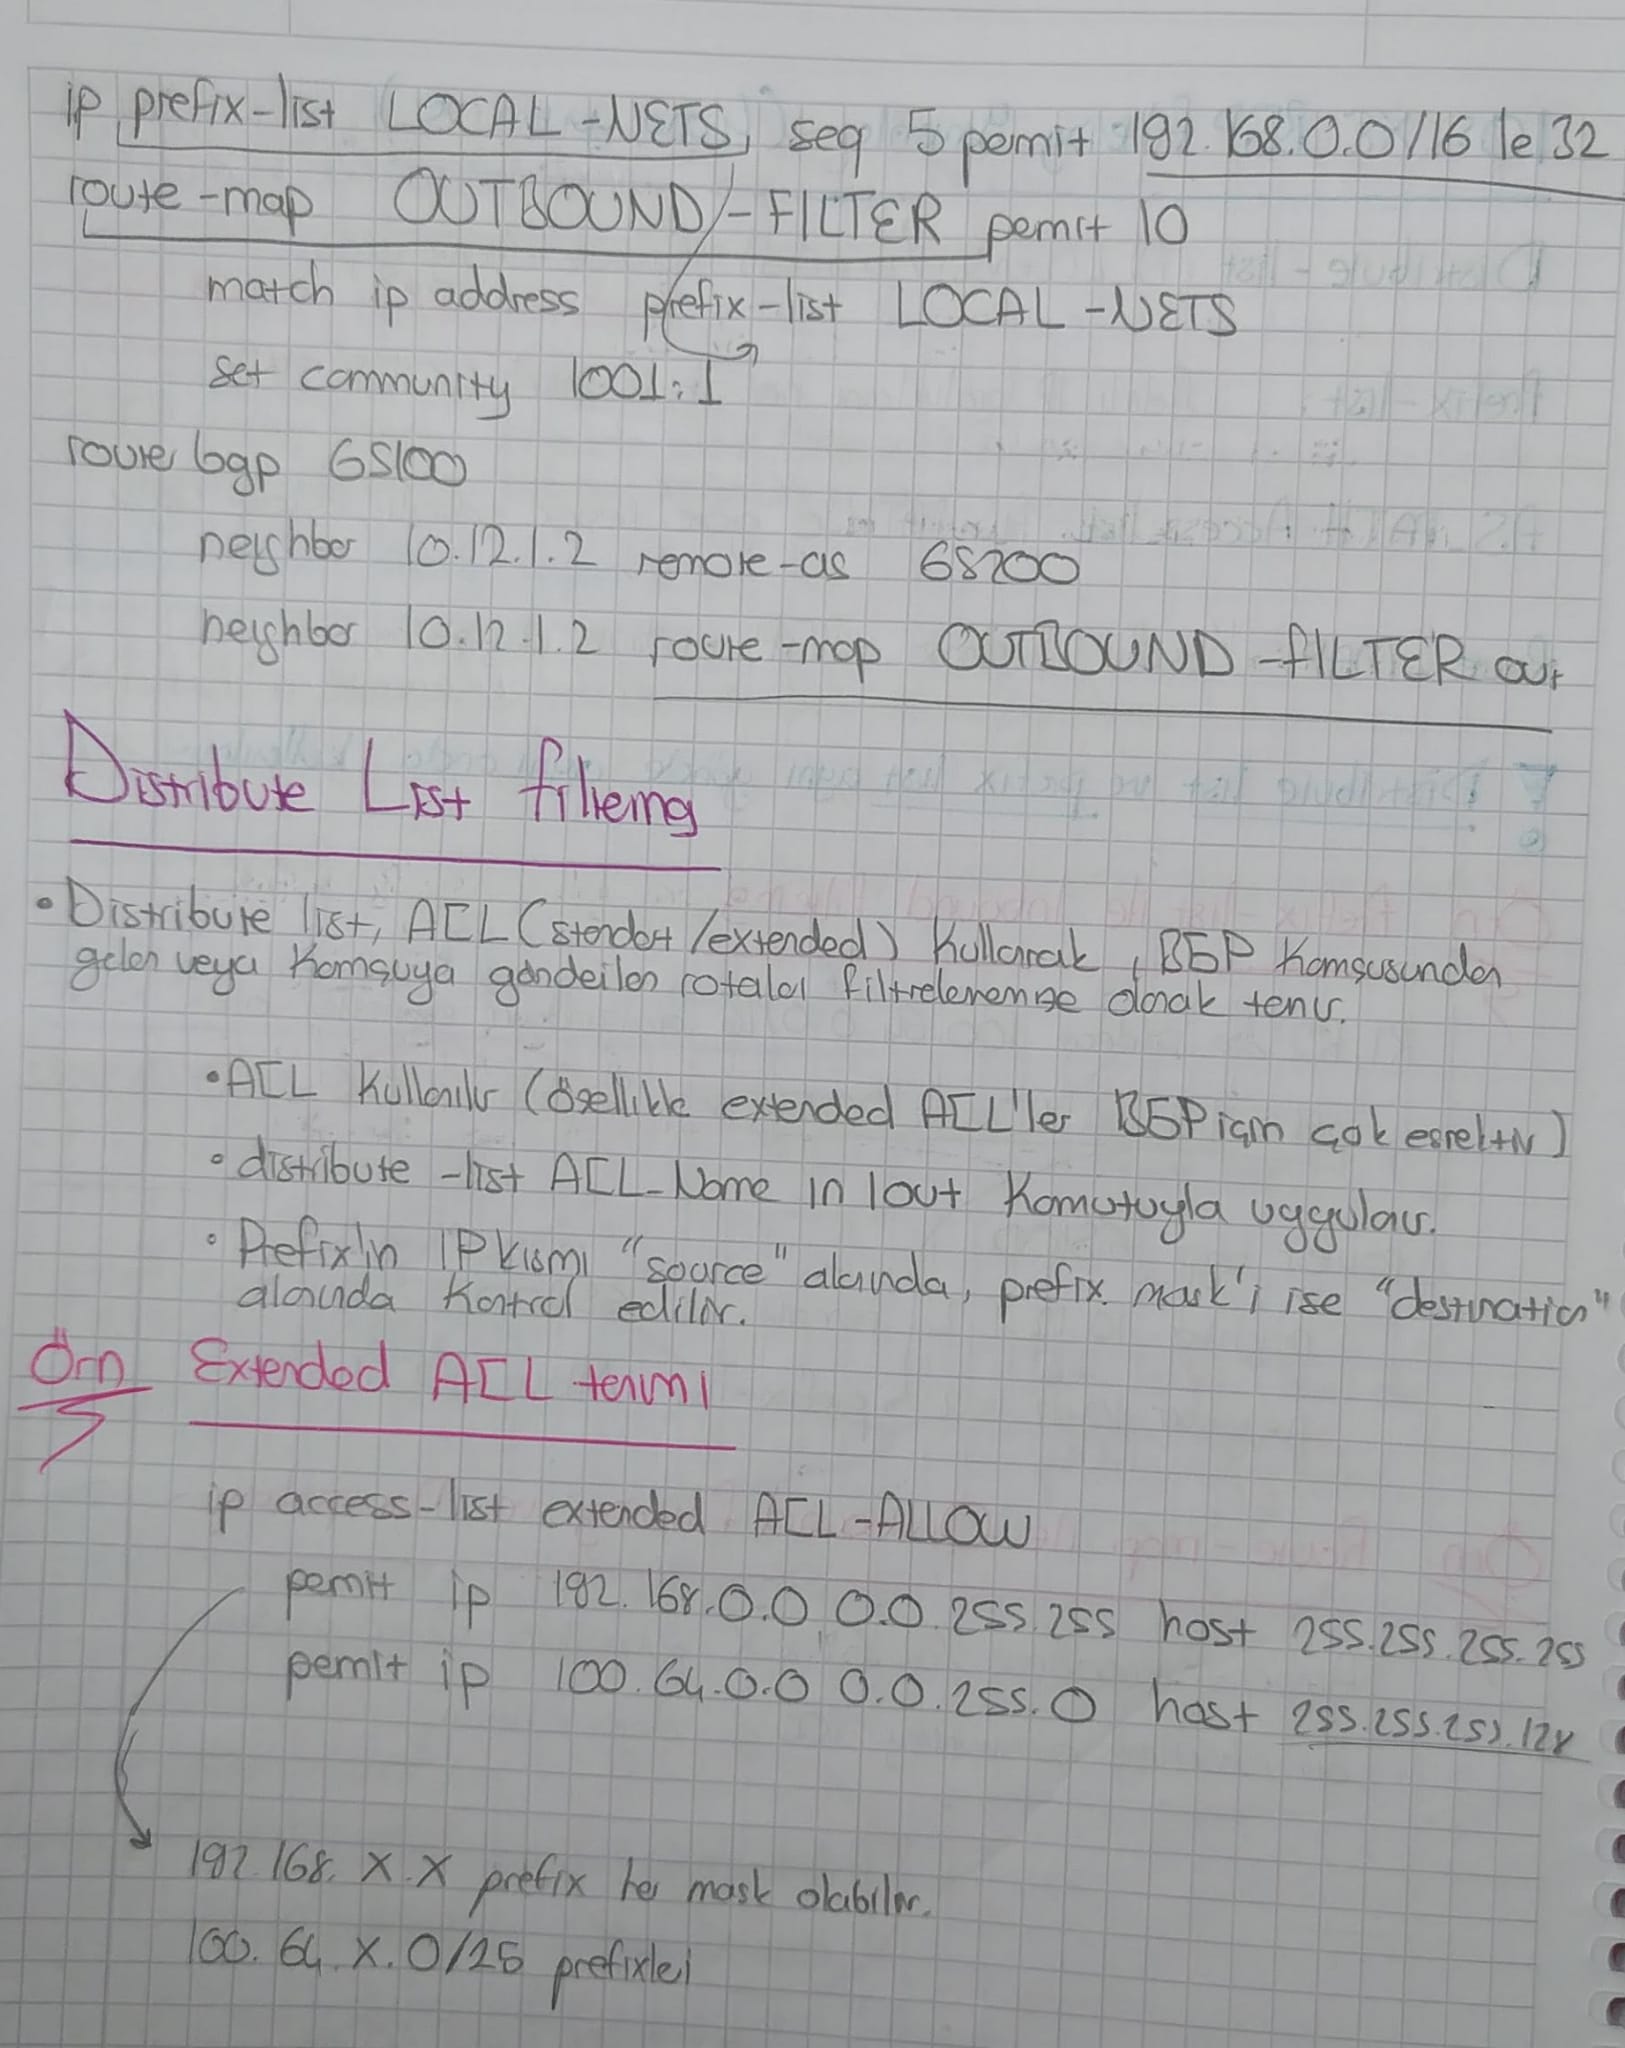 ip prefix-list LOCAL-NETS, seq 5 permit 192.168.0.0/16 le 32
route-map OUTBOUND-FILTER permit 10
match ip address prefix-list LOCAL-NETS
set community 1001:1
route bgp 65100
neighbor 10.12.1.2 remote-as 65200
neighbor 10.12.1.2 route-map OUTBOUND-fILTER out
Distribute List filtering
• Distribute list, ACL (standart/extended) kullanarak, BGP komşusundan
gelen veya komşuya gönderilen rotaları filtrelemenize olanak tanır.
• ACL kullanılır (özellikle extended ACL'ler BGP için çok esnektir)
• distribute-list ACL_Name in/out komutuyla uygulanır.
• Prefix'in IP kısmı "source" alanında, prefix mask'i ise "destination"
alanında kontrol edilir.
Örn Extended ACL tanımı
ip access-list extended ACL-ALLOW
permit ip 192.168.0.0 0.0.255.255 host 255.255.255.255
permit ip 100.64.0.0 0.0.255.0 host 255.255.255.128
192.168.X.X prefix her mask olabilir.
100.64.X.0/25 prefixleri